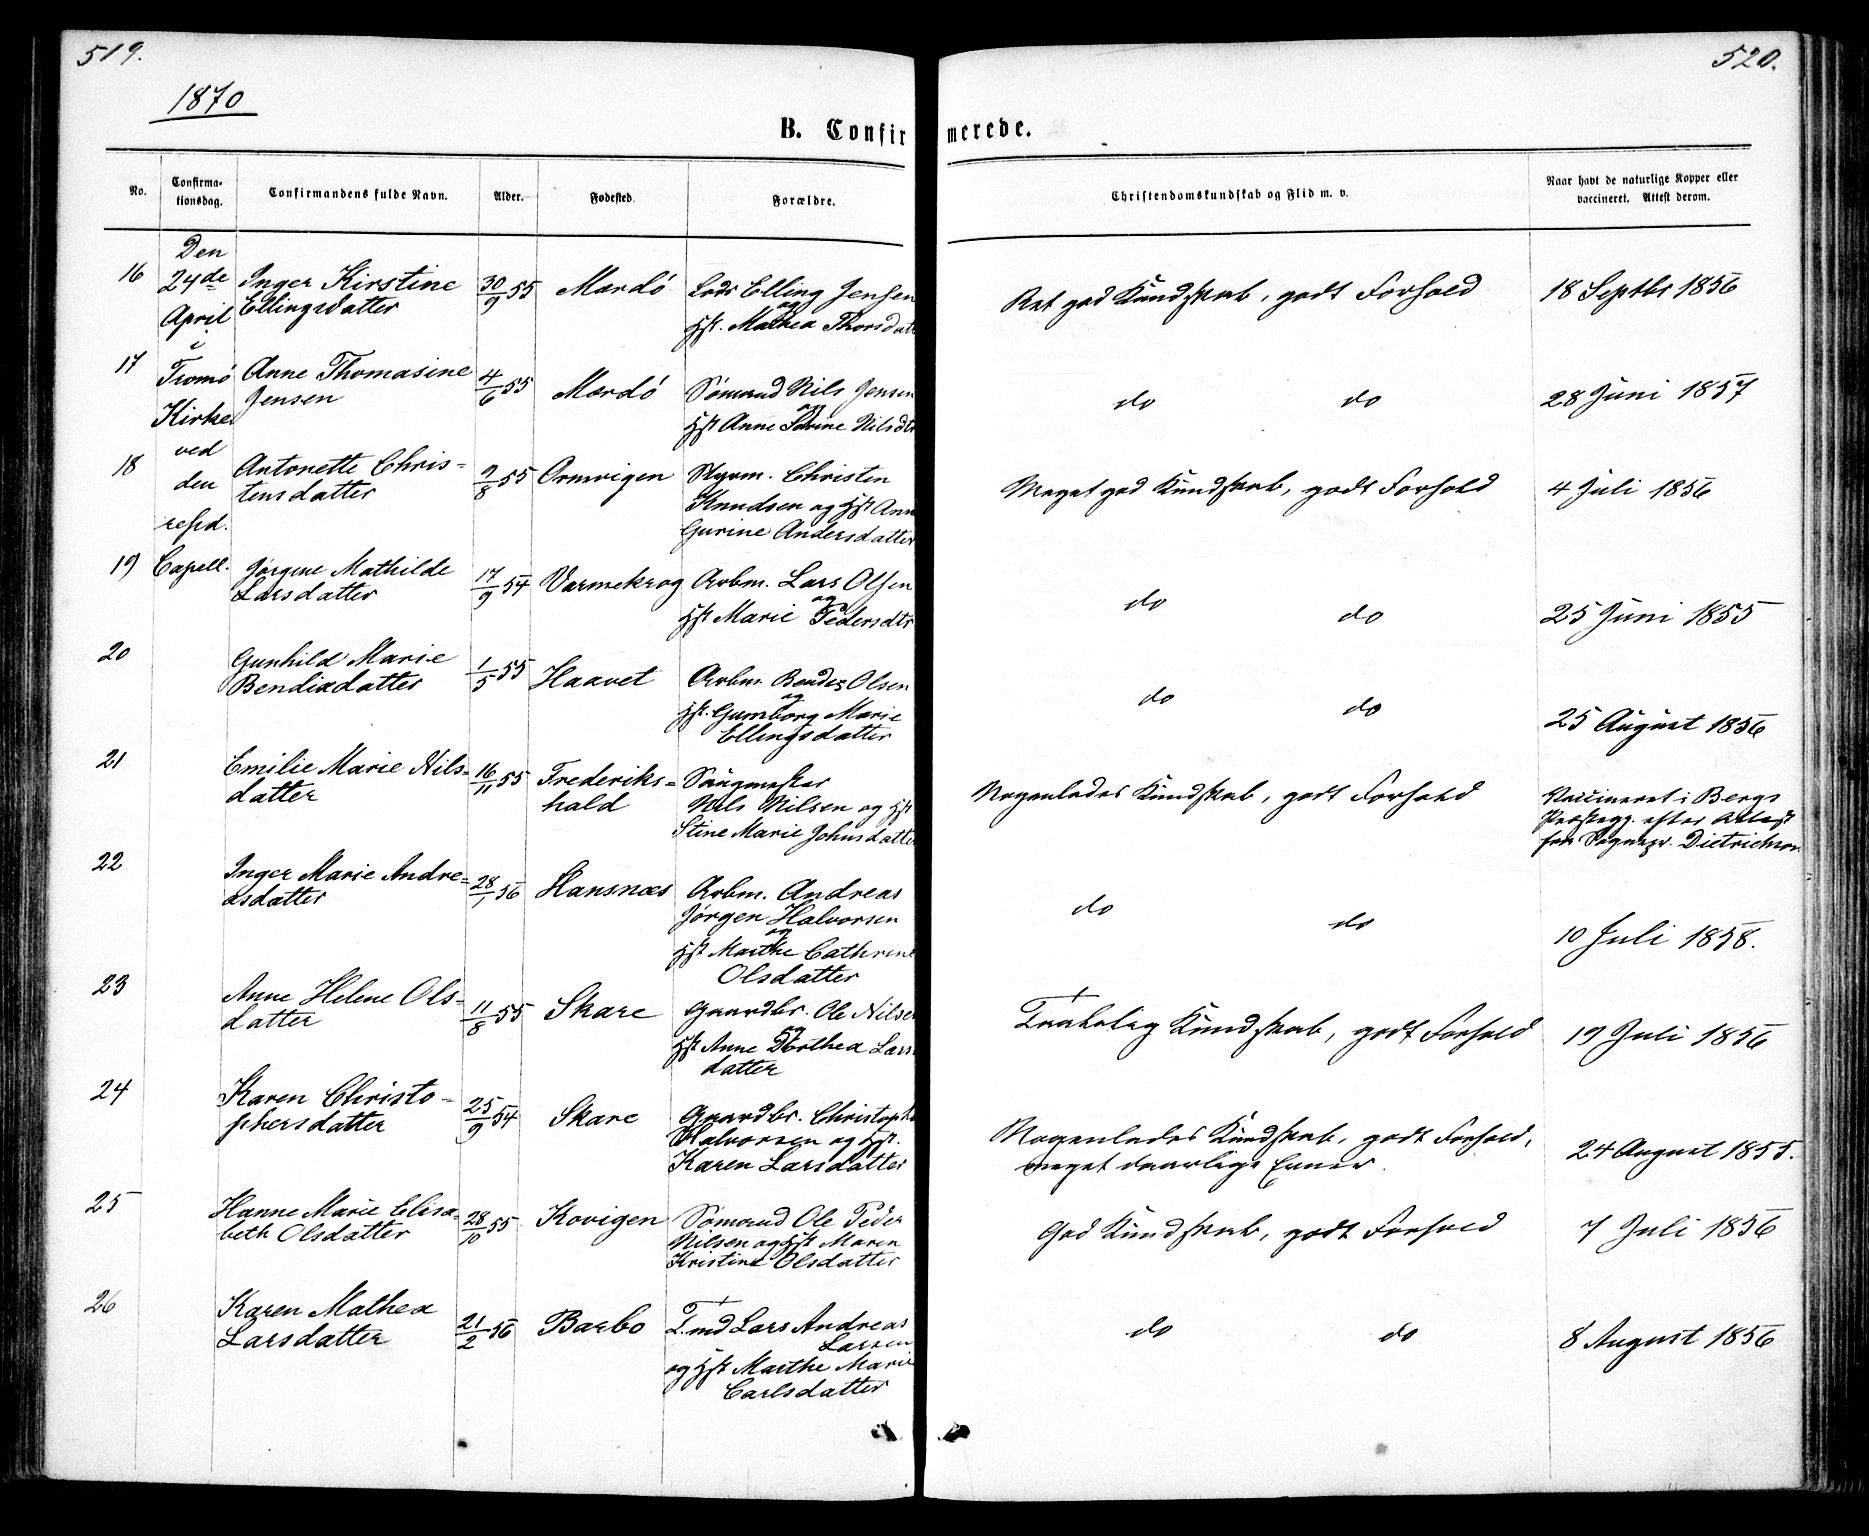 519.
520.
1870
B. Confirmerede.
No.
Confirma-
tionsdag.
Confirmandens fulde Navn.
Alder.
Fødested.
Forældre.
Christendomskundskab og Flid m. v.
Naar havt de naturlige Kopper eller
vaccineret. Attest derom.
Den
24de
April
i
Tromø
Kirke
ved
den
resid.
Capell.
16
Inger Kirstine
Ellingsdatter
30/9 55
Mærdö
Lods Elling Jensen
og
Hst. Mathea Thorsdatt
Ret god Kundskab, godt Forhold
18 Septbr 1856
17
Anne Thomasine
Jensen
4/6 55
Mærdö
Sömand Nils Jensen
og
Hst Anne Nilsdtr
do do
28 Juni 1857
18
Antonette Chris-
tensdatter
9/8 55
Ormvigen
Styrm. Christen
Knudsen og Hst Ann
Gurine Andersdatter
Meget god Kundskab, godt Forhold
4 Juli 1856
19
Jørgine Mathilde
Larsdatter
17/9 54
Varmekrog
Arbm. Lars Olsen
og
Hst Marie Pedersdtr
do do
25 Juni 1855
20
Gunhild Marie
Bendixdatter
1/5 55
Haavet
Arbm. Bendix Olsen
og
Hst. Gumborg Marie
Ellingsdatter
do do
25 August 1856
21
Emilie Marie Nils-
datter
16/11 55
Frederiks-
hald
Saugmester
Nils Nilsen og Hst
Stine Marie Johnsdatter
Nogenledes Kundskab, godt Forhold
Vaccineret i Bergs
Præstegj. efter Attest
fra Sognepr. Dietrichson
22
Inger Marie Andre-
asdatter
28/1 56
Hansnæs
Arbm. Andreas
Jørgen Halvorsen
og
Hst Marthe Cathrine
Olsdatter
do do
10 Juli 1858.
23
Anne Helene Ols-
datter
11/8 55
Skare
Gaardbr. Ole Nilsen
og
Hst Anne Dorthea Lars
datter
Taalelig Kundskab, godt Forhold
19 Juli 1856
24
Karen Christo-
phersdatter
25/9 54
Skare
Gaardbr. Christoph
Halvorsen og Hst.
Karen Larsdatter
Nogenledes Kundskab, godt Forhold,
meget daarlige Evner.
24 August 1855.
25
Hanne Marie Elisa-
beth Olsdatter
28/10 55
Kovigen
Sömand Ole Peder
Nilsen og Hst Maren
Kristine Olsdatter
God Kundskab, godt Forhold
7 Juli 1856
26
Karen Mathea
Larsdatter
21/2 56
Barbo
T.md Lars Andreas
Larsen
og Hst Marthe Marie
Carlsdatter
do do
8 August 1856